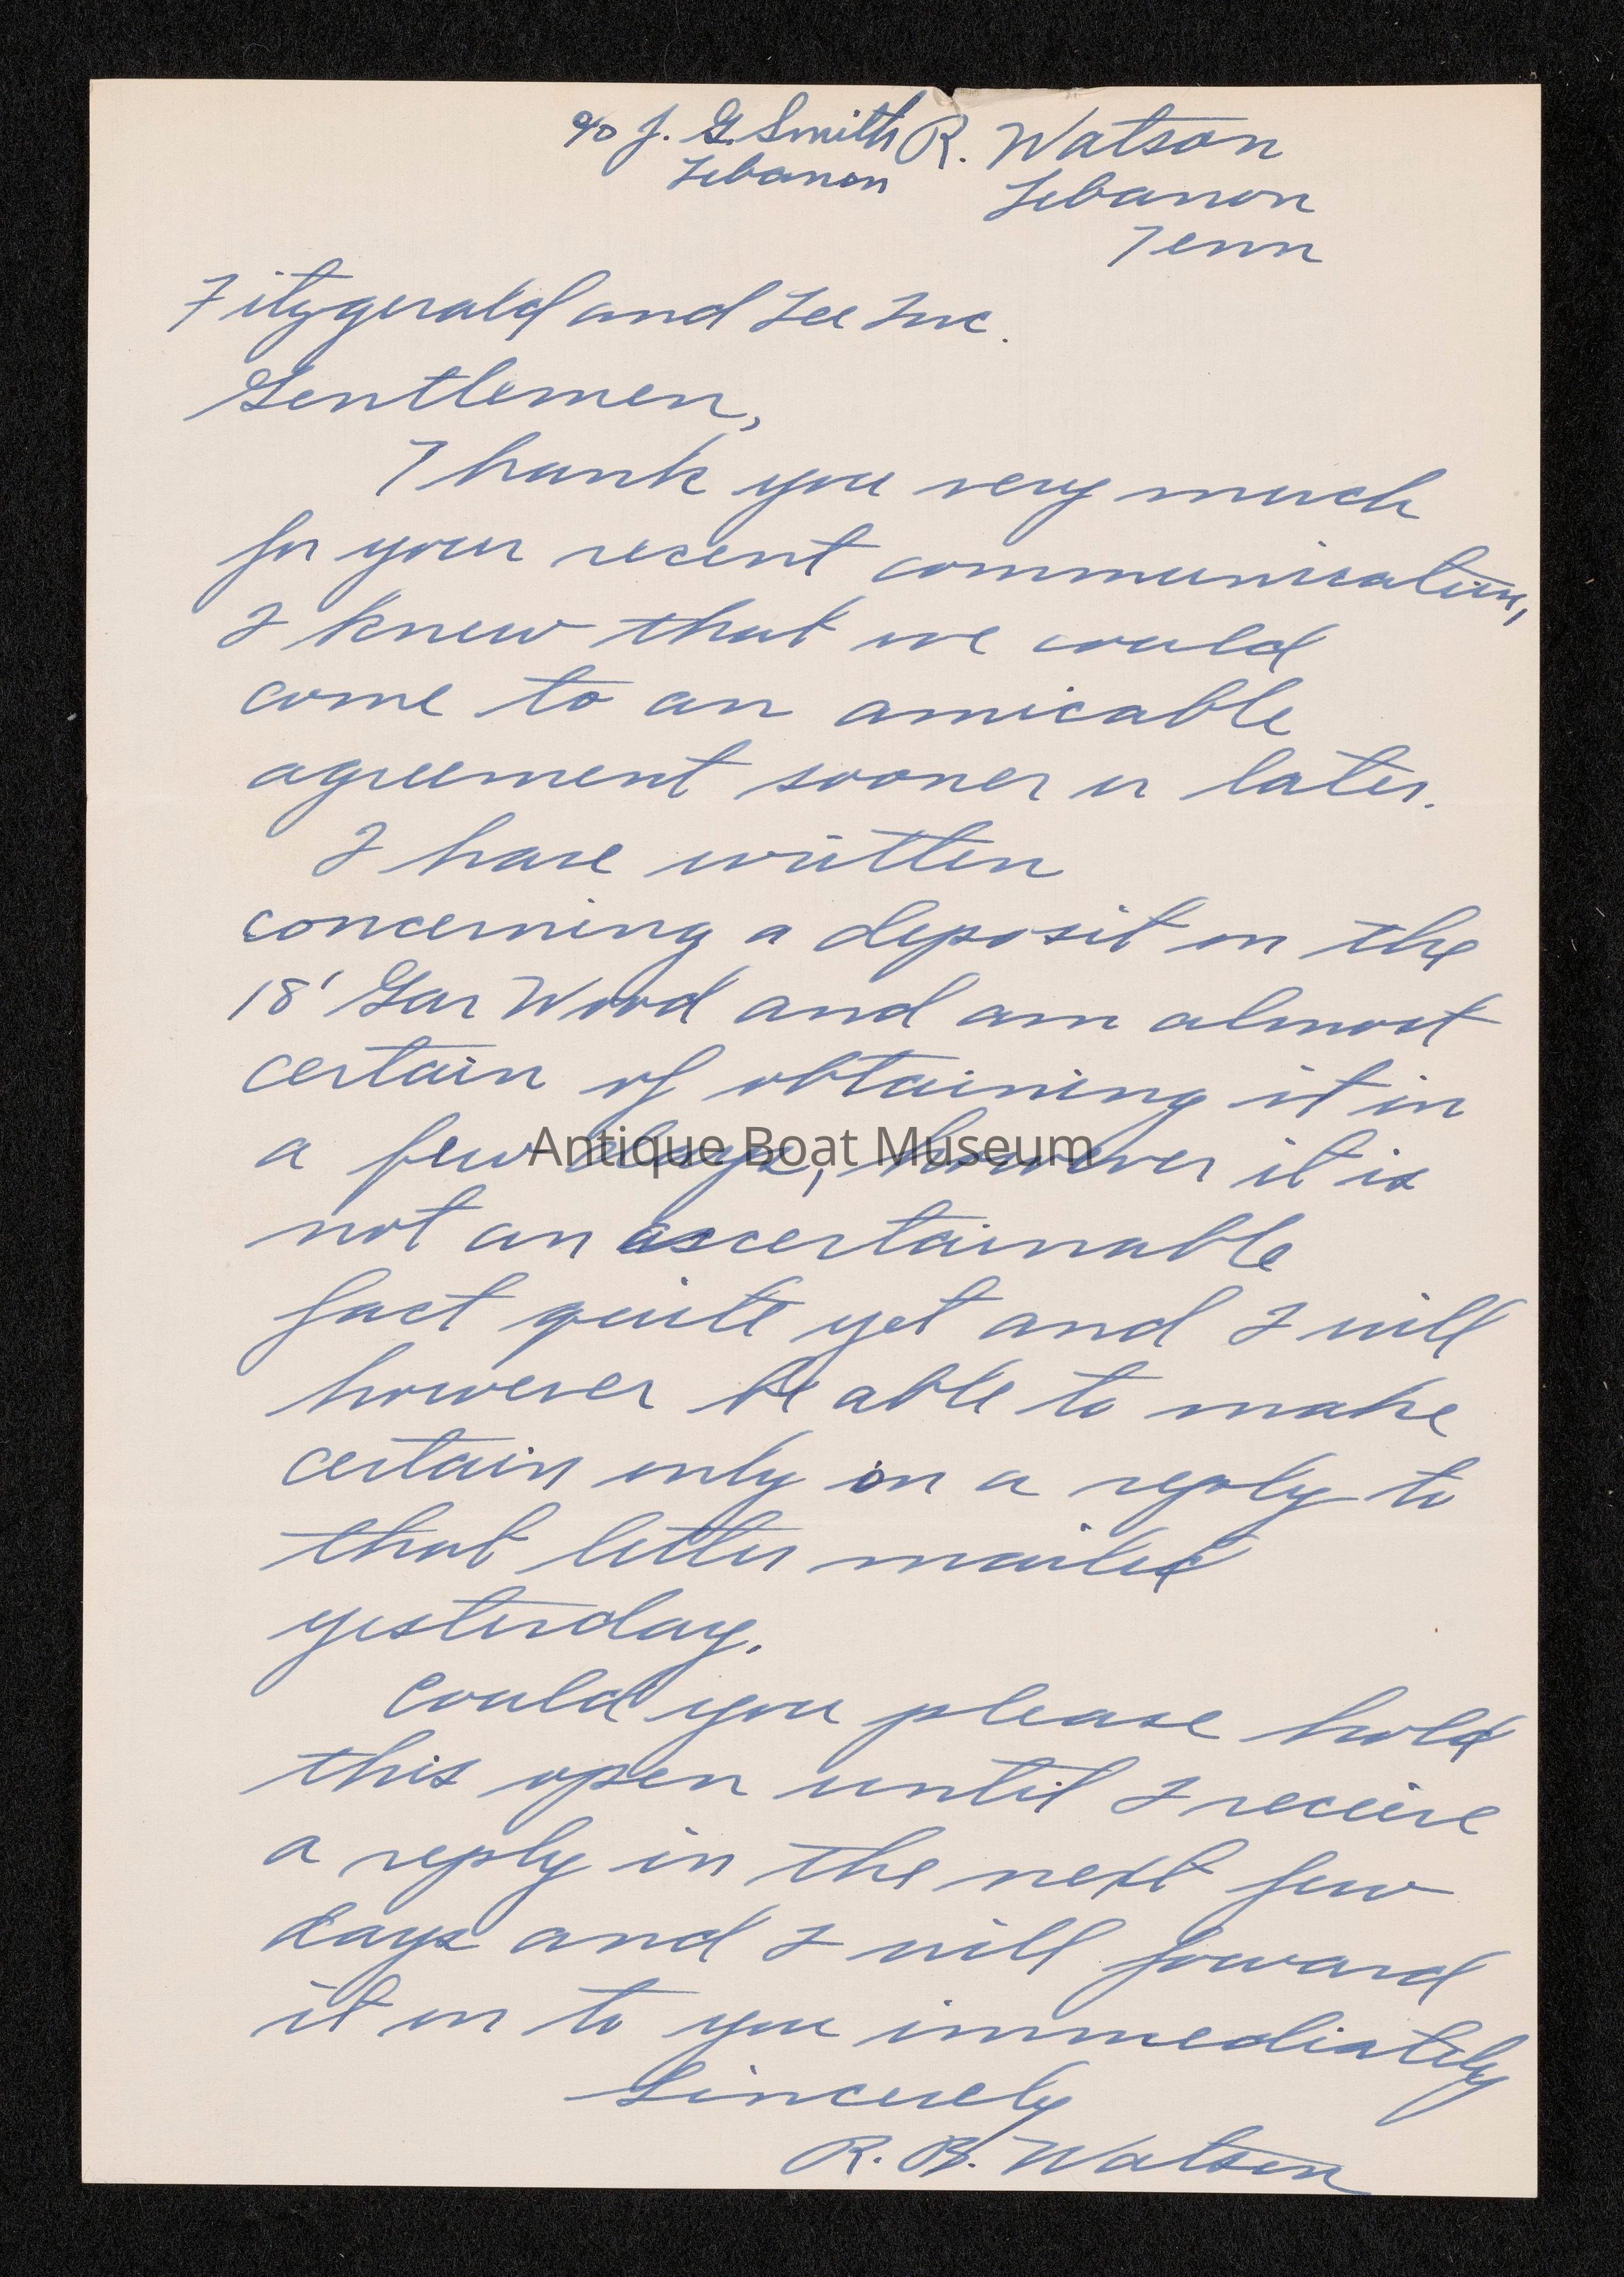 c/o J. G. Smith R. Watson
Lebanon Lebanon
Tenn
Fitzgerald and Lee Inc.
Gentlemen,
Thank you very much
for your recent communication,
I knew that we could
come to an amicable
agreement sooner or later.
I have written
concerning a deposit on the
18' Gar Wood and am almost
certain of obtaining it in
a few days, however it is
Antique Boat Museum
not an ascertainable
fact quite yet and I will
however be able to make
certain only on a reply to
that letter mailed
yesterday.
Could you please hold
this open until I receive
a reply in the next few
days and I will foward
it on to you immediately
Sincerely
R. B. Watson